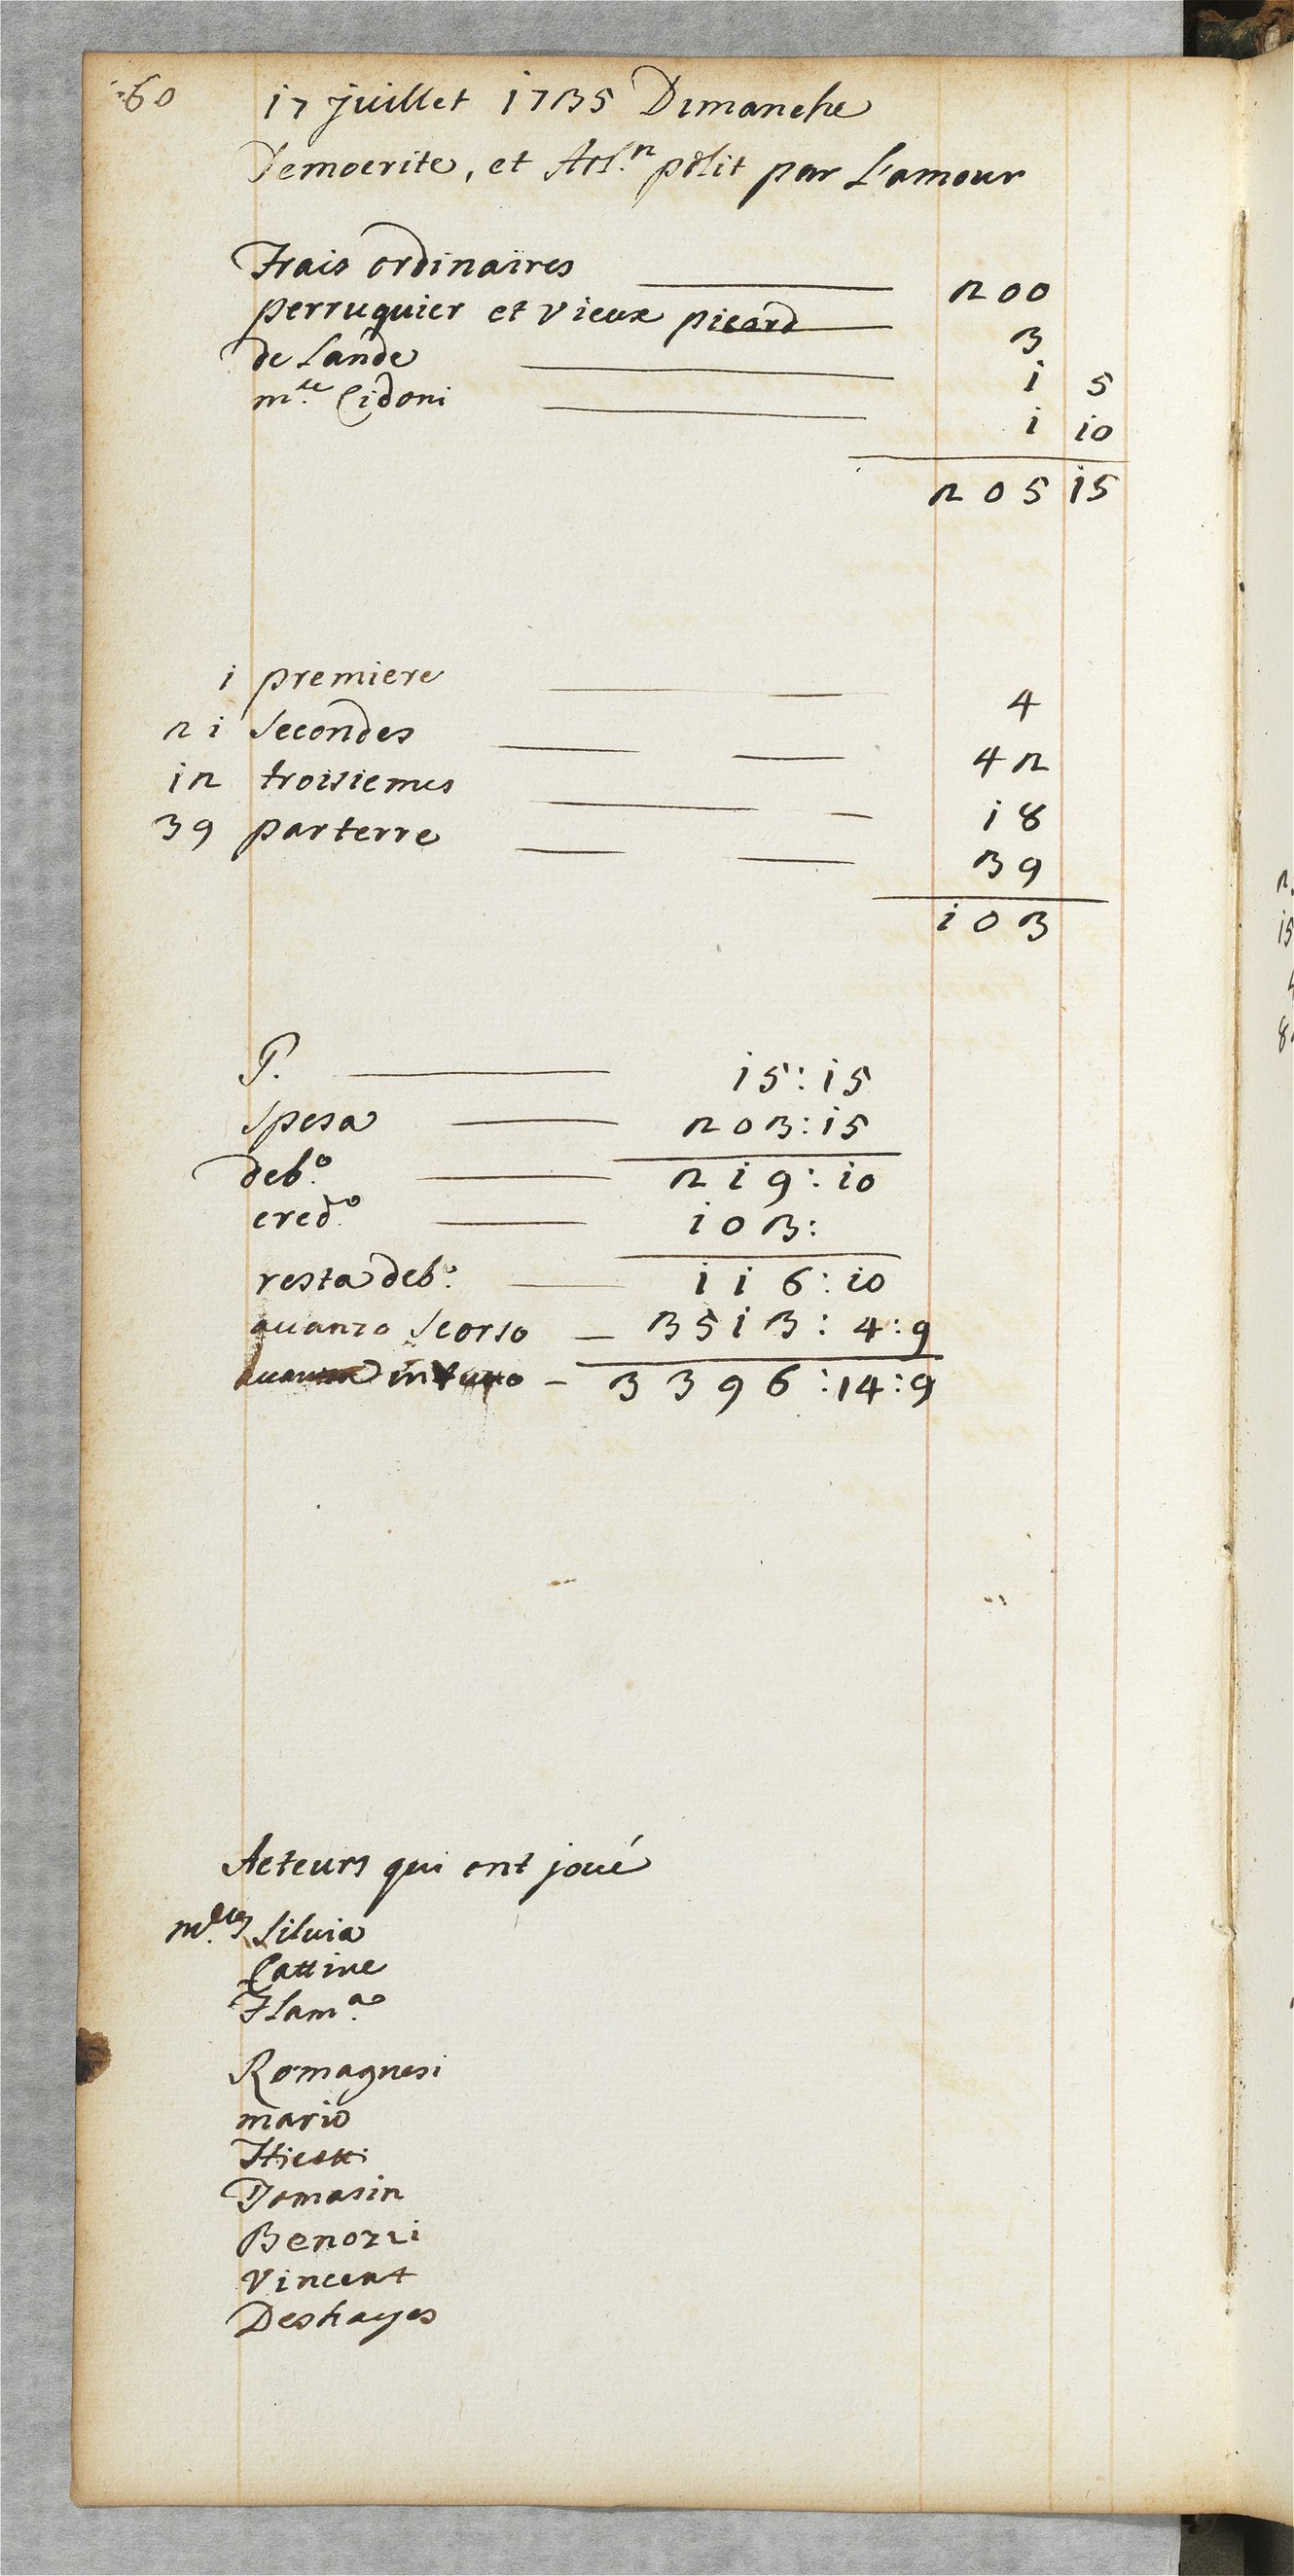 60
17 juillet 1735 Dimanche
Democrite, et Arl.n polit par L'amour
Frais ordinaires 200
perruquier et vieux picard 3
de Lande 1 5
mlle Cidoni 1 10
205 15
1 premiere 4
21 Secondes 42
12 troisiemes 18
39 parterre 39
103
P. 15:15
Spesa 203:15
deb.o 219:10
cred.o 103:
resta deb.o 116:10
auanzo scorso 3513:4:9
3396:14:9
Acteurs qui ont joué
mlles Siluia
Cattine
Flam.a
Romagnesi
mario
Sticotti
Tomasin
Benozzi
Vincent
Deshayes